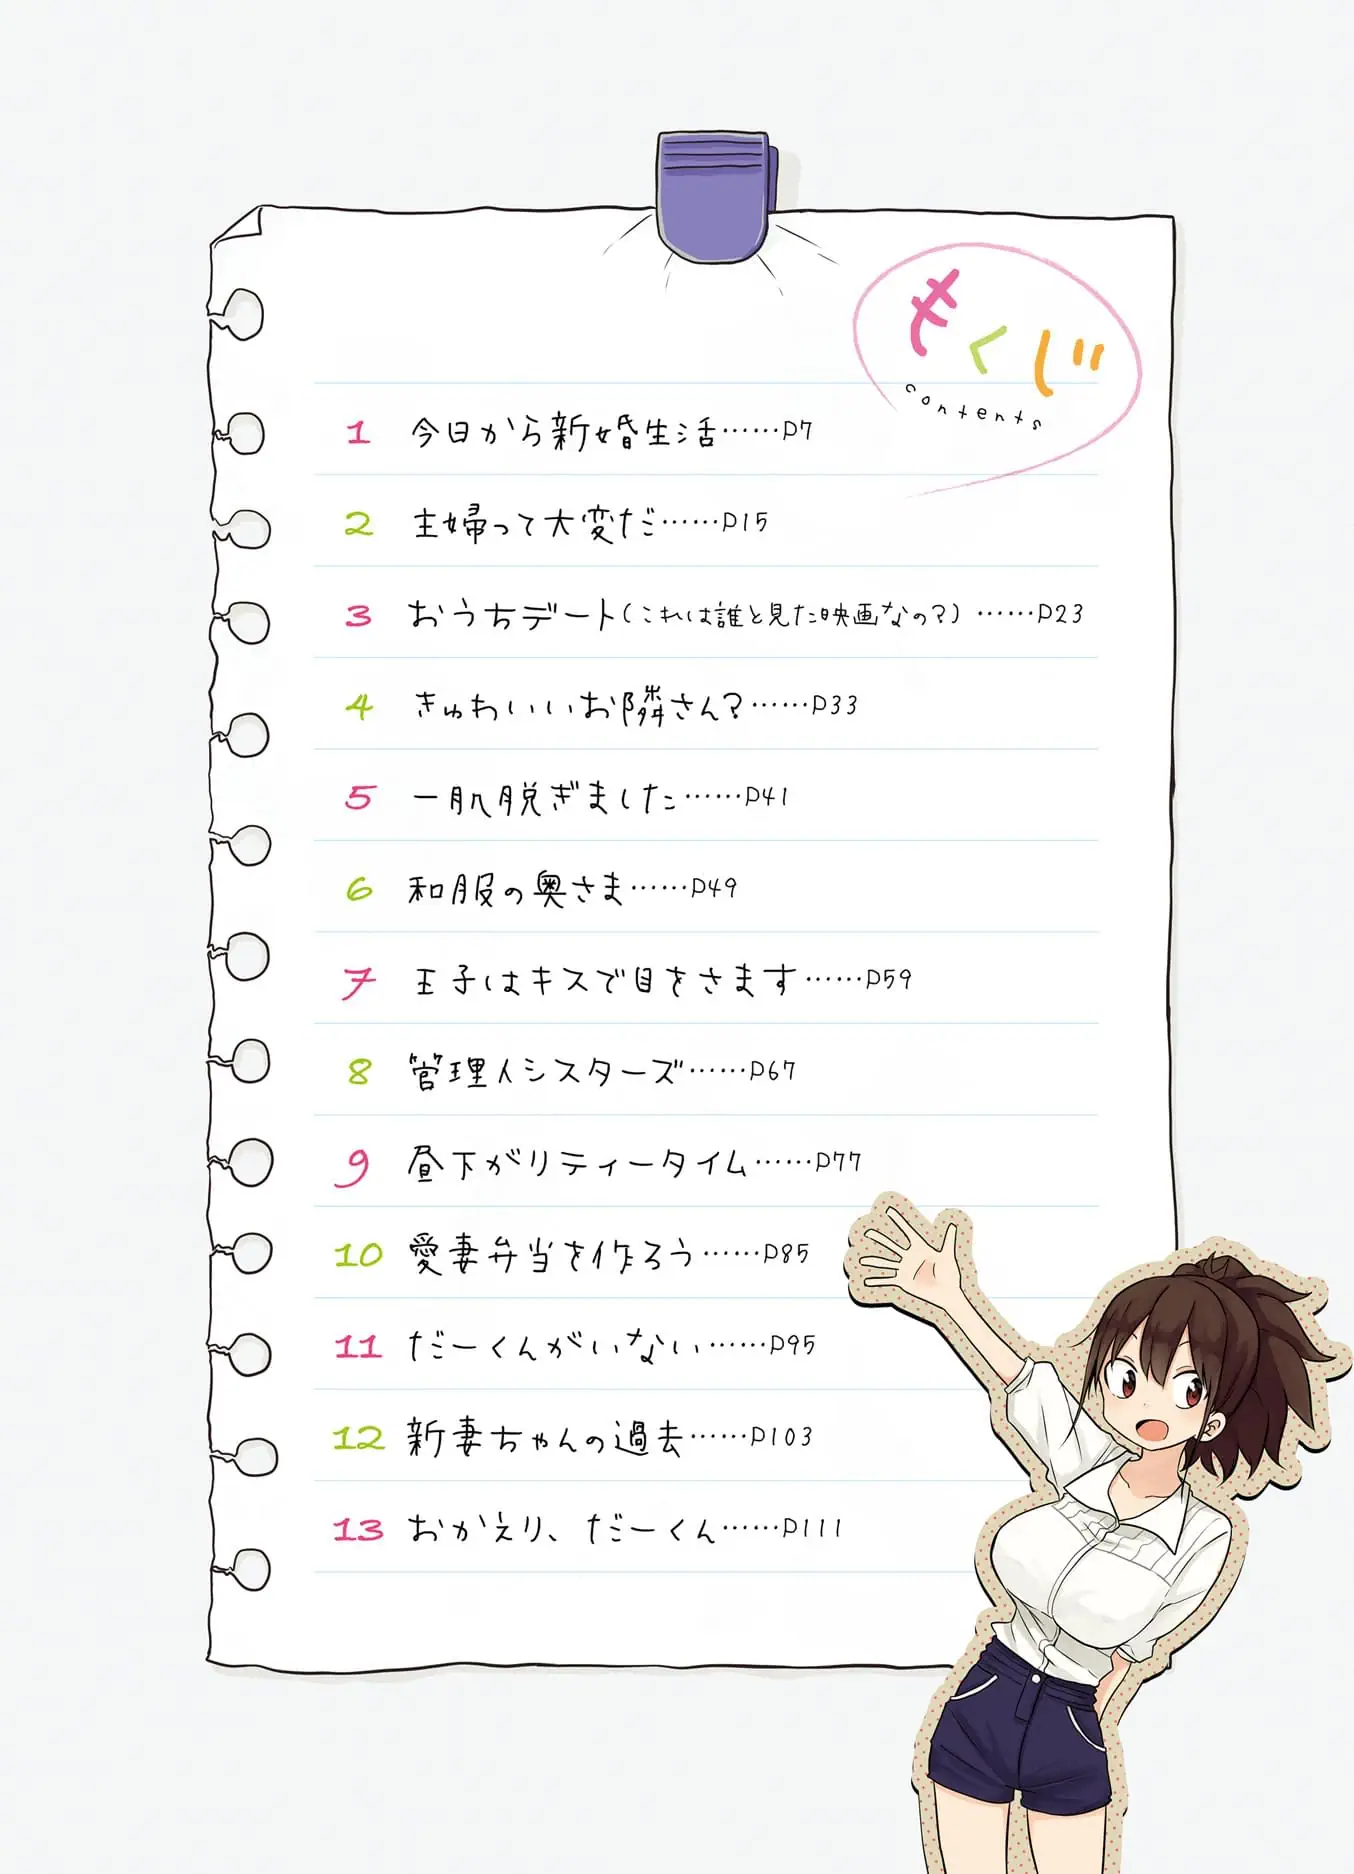 もくじ
contents
1 今日から新婚生活……P7
2 主婦って大変だ……P15
3 おうちデート(これは誰と見た映画なの?)……P23
4 きゅわいいお隣さん?……P33
5 一肌脱ぎました……P41
6 和服の奥さま……P49
7 王子はキスで目をさます……P59
8 管理人シスターズ……P67
9 昼下がりティータイム……P77
10 愛妻弁当を作ろう……P85
11 だーくんがいない……P95
12 新妻ちゃんの過去……P103
13 おかえり、だーくん……P111